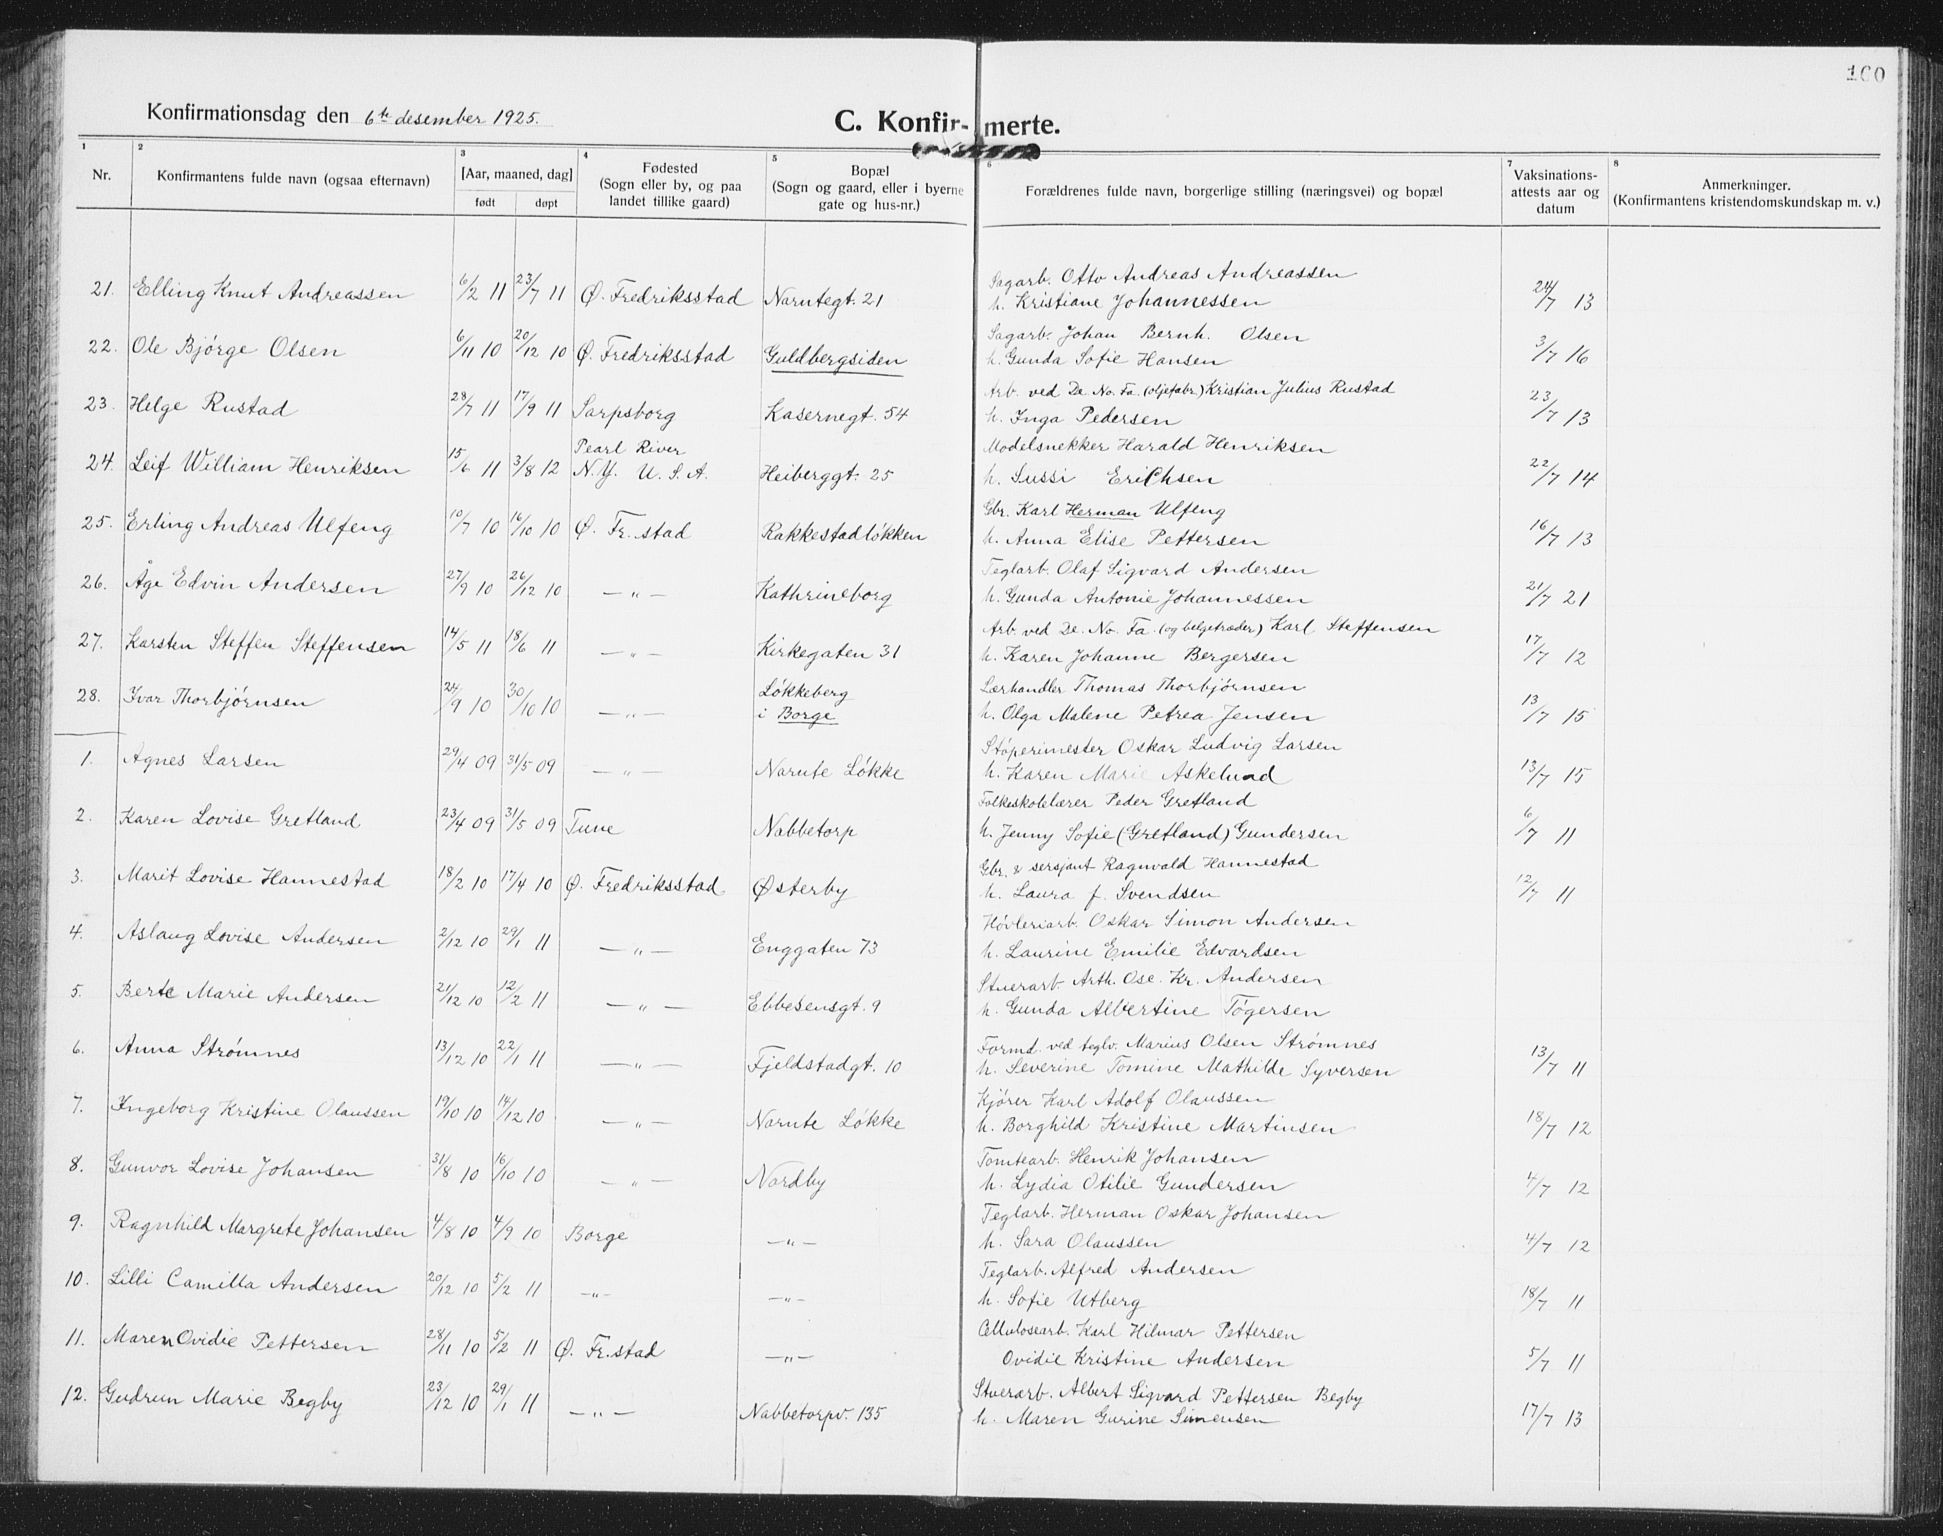 100
Konfirmationsdag den 6te desember 1925.
C. Konfir- merte.
1 2 3 4 5 6 7 8
Nr. Konfirmantens fulde navn (ogsaa efternavn) [Aar, maaned, dag] født døpt Fødested (Sogn eller by, og paa landet tillike gaard) Bopæl (Sogn og gaard, eller i byerne gate og hus-nr.) Forældrenes fulde navn, borgerlige stilling (næringsvei) og bopæl Vaksinations-attests aar og datum Anmerkninger. (Konfirmantens kristendomskundskap m. v.)
Sagarb. Otto Andreas Andreassen
21. Elling Knut Andreassen 6/2 11 23/7 11 Ø. Fredriksstad Narntegt. 21 h. Kristiane Johannessen 24/7 13
Sagarb. Johan Bernh. Olsen
22. Ole Bjørge Olsen 6/11 10 20/12 10 Ø. Fredriksstad Guldbergsiden h. Gunda Sofie Hansen 3/7 16
Arb. ved De No. Fa. (oljefabr.) Kristian Julius Rustad
23. Helge Rustad 28/7 11 17/9 11 Sarpsborg Kasernegt. 54 h. Inga Pedersen 23/7 13
Pearl River Modelsnekker Harald Henriksen
24. Leif William Henriksen 15/6 11 3/8 12 N.Y. U.S.A. Heiberggt. 25 h. Sussi Erichsen 22/7 14
Gbr. Karl Herman Ulfeng
25. Erling Andreas Ulfeng 10/7 10 16/10 10 Ø. Fr.stad Rakkestadløkken h. Anna Elise Pettersen 16/7 13
Teglarb. Olaf Sigvard Andersen
26. Åge Edvin Andersen 27/9 10 26/12 10 —"— Kathrineborg h. Gunda Antonie Johannessen 21/7 21
Arb. ved De. No. Fa. (og belgetræder) Karl Steffensen
27. Karsten Steffen Steffensen 14/5 11 18/6 11 —"— Kirkegaten 31 h. Karen Johanne Bergersen 17/7 12
Løkkeberg Lærhandler Thomas Thorbjørnsen
28. Ivar Thorbjørnsen 24/9 10 30/10 10 —"— i Borge h. Olga Malene Petrea Jensen 13/7 15
Støperimester Oskar Ludvig Larsen
1. Agnes Larsen 29/4 09 31/5 09 —"— Narnte Løkke h. Karen Marie Askelund 13/7 15
Folkeskolelærer Peder Gretland
2. Karen Lovise Gretland 23/4 09 31/5 09 Tune Nabbetorp h. Jenny Sofie (Gretland) Gundersen 6/7 11
Gbr. & sersjant Ragnvald Hannestad
3. Marit Lovise Hannestad 18/2 10 17/4 10 Ø. Fredriksstad Østerby h. Laura f. Svendsen 12/7 11
Høvleriarb. Oskar Simon Andersen
4. Aslaug Lovise Andersen 2/12 10 29/1 11 —"— Enggaten 73 h. Laurine Emilie Edvardsen
Stuerarb. Arth. Osc. Kr. Andersen
5. Berte Marie Andersen 21/12 10 12/2 11 —"— Ebbesensgt. 9 h. Gunda Albertine Tøgersen
Formd. ved teglv. Marius Olsen Strømnes
6. Anna Strømnes 13/12 10 22/1 11 —"— Fjeldstadgt. 10 h. Severine Tomine Mathilde Syversen 13/7 11
Kjører Karl Adolf Olaussen
7. Ingeborg Kristine Olaussen 19/10 10 14/12 10 —"— Narnte Løkke h. Borghild Kristine Martinsen 18/7 12
Tomtearb. Henrik Johansen
8. Gunvor Lovise Johansen 31/8 10 16/10 10 —"— Nordby h. Lydia Otilie Gundersen 4/7 12
Teglarb. Herman Oskar Johansen
9. Ragnhild Margrete Johansen 4/8 10 4/9 10 Borge —"— h. Sara Olaussen 4/7 12
Teglarb. Alfred Andersen
10. Lilli Camilla Andersen 20/12 10 5/2 11 —"— —"— h. Sofie Utberg 18/7 11
Cellulosearb. Karl Hilmar Pettersen
11. Maren Ovidie Pettersen 28/11 10 5/2 11 Ø. Fr.stad —"— Ovidie Kristine Andersen 5/7 11
Stuerarb. Albert Sigvard Pettersen Begby
12. Gudrun Marie Begby 23/12 10 29/1 11 —"— Nabbetorpv. 135 h. Maren Gurine Simensen 17/7 13